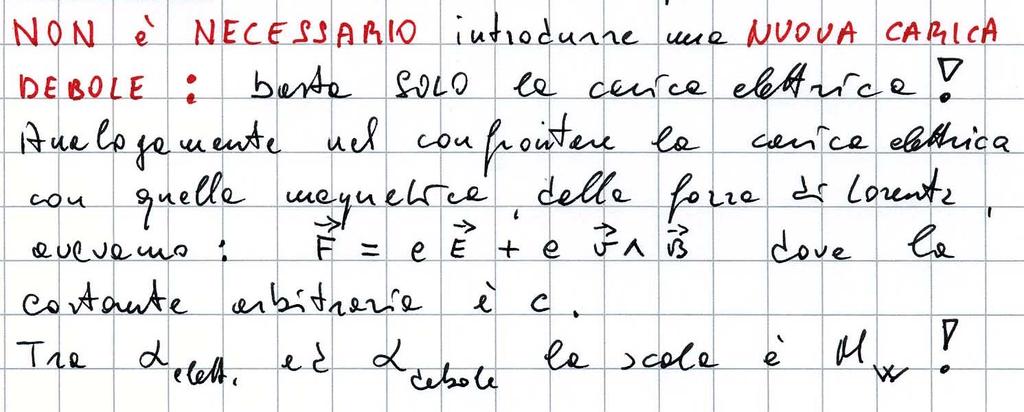 NON è NECESSARIO introdurre una NUOVA CARICA
DEBOLE : basta SOLO la carica elettrica !
Analogamente nel confrontare la carica elettrica
con quella magnetica, della forza di Lorentz,
avevamo : F⃗ = e E⃗ + e v⃗ ∧ B⃗ dove la
costante arbitraria è c.
Tra α_elett. ed α_debole la scala è M_W !